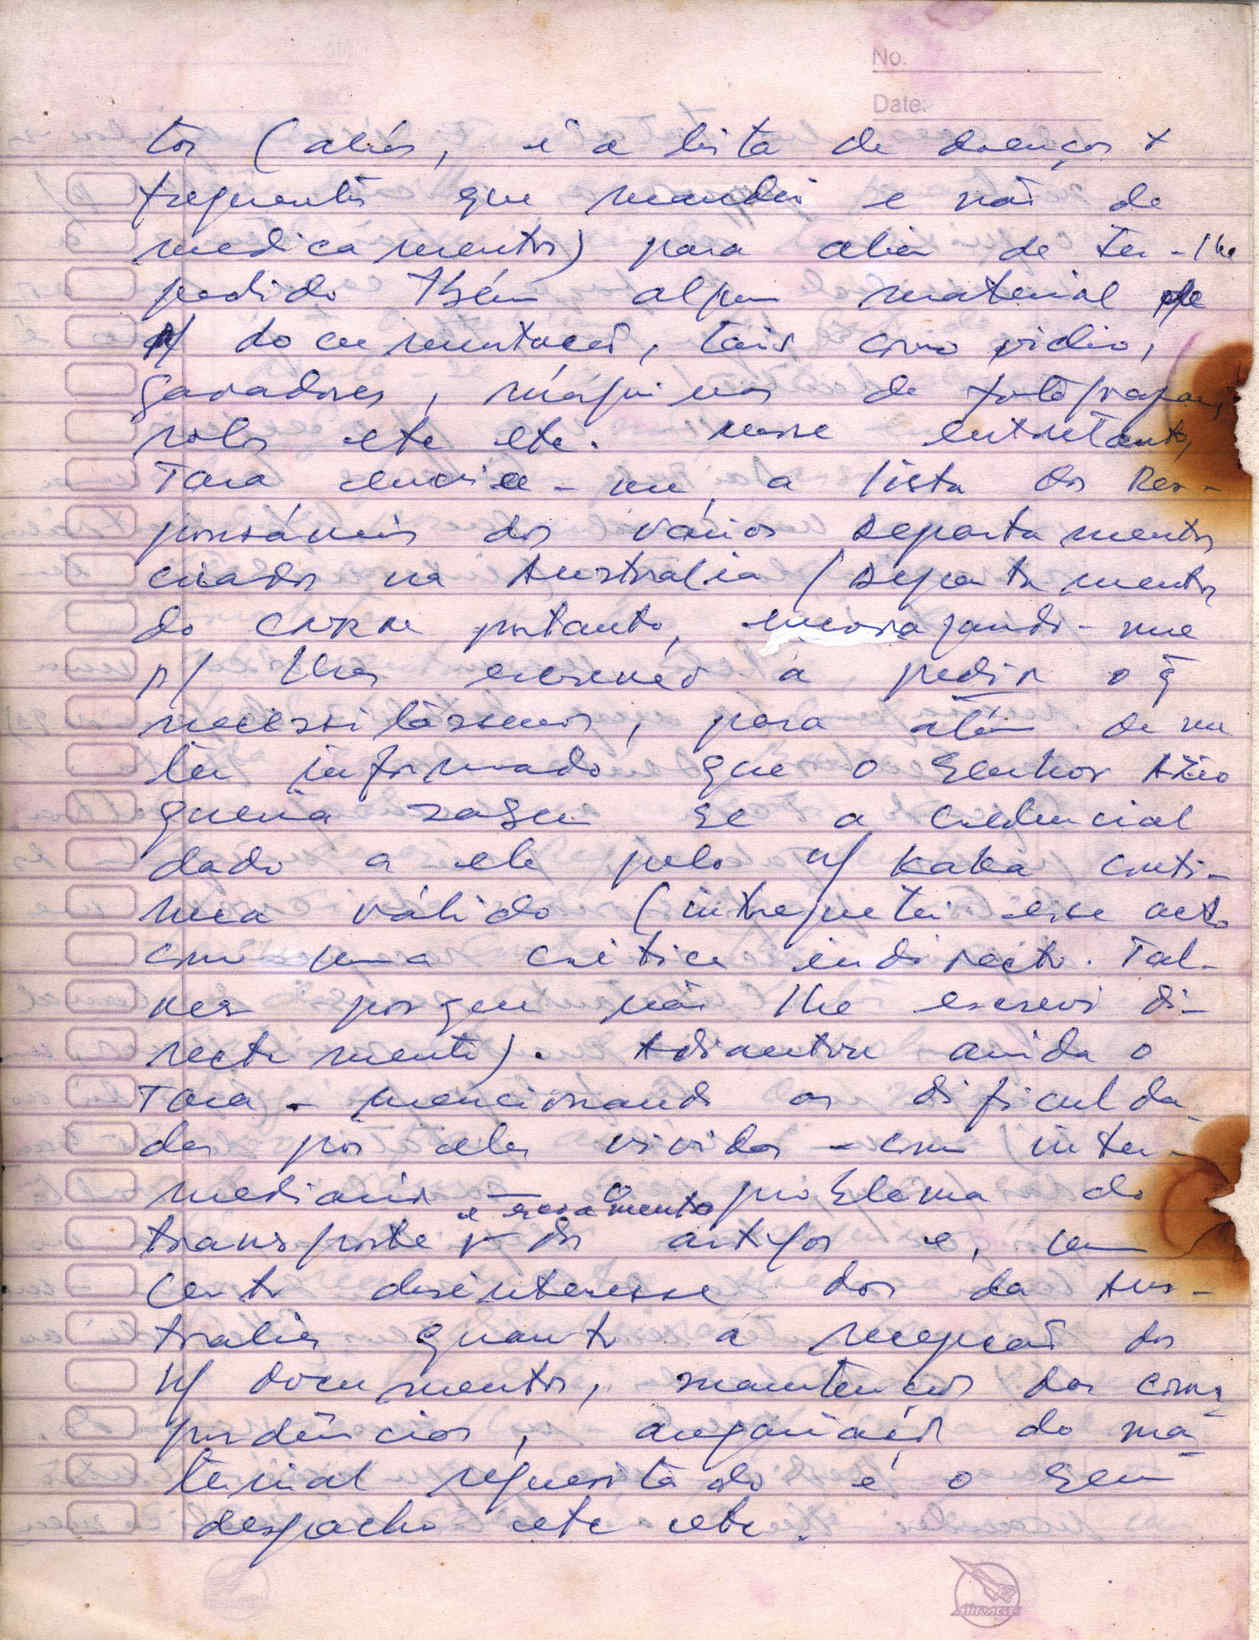 No.
Date:
tos (aliás, é a lista de doenças +
frequentes que mandei e não de
medicamentos) para além de ter-lhe
pedido tbém algum material de
p/ documentação, tais como vídio,
gavadores, máquinas de fotografar,
rolos etc etc. nesse entretanto,
Tara envia-me a lista dos Res-
ponsáveis dos vários Departamentos
criados na Australia (Departamentos
do CNRM portanto, encorajando-me
p/ lhes escrever a pedir o q̃
necessitássemos, para além de me
ter informado que o Senhor Aião
queria saber se a credencial
dado a ele pelo n/ Kaka conti-
nua válido (intrepetei esse acto
como uma crítica indirecto. Tal-
vez porque não lhe escrevi di-
rectamente). Adiantou ainda o
Tara - mencionando as dificulda-
des por eles vividas - com inter-
mediários - o problema do
e
transporte dos artigos e, um
certo desinteresse dos da Aus-
tralia quanto a recepção dos
n/ documentos, manutenção das corres
pondências, angariação do ma-
terial requesitado e o seu
despacho etc etc.